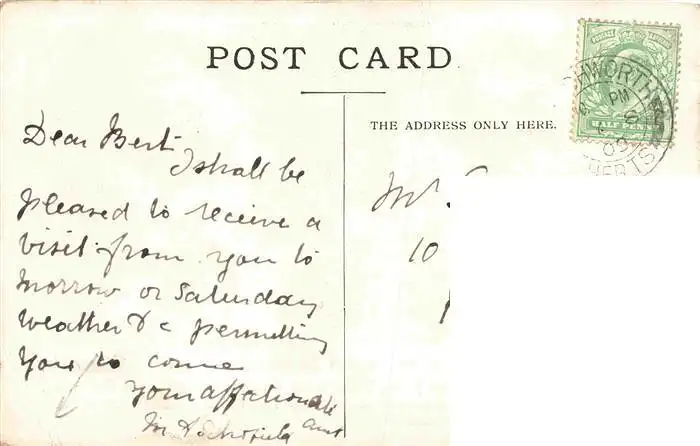 POST CARD
THE ADDRESS ONLY HERE.
HALF PENNY
PM
09
HERTS
Dear Bert
I shall be
pleased to receive a
visit from you to
morrow or Saturday
Weather & c permitting
you to come
your affationate
aunt
Mr
10